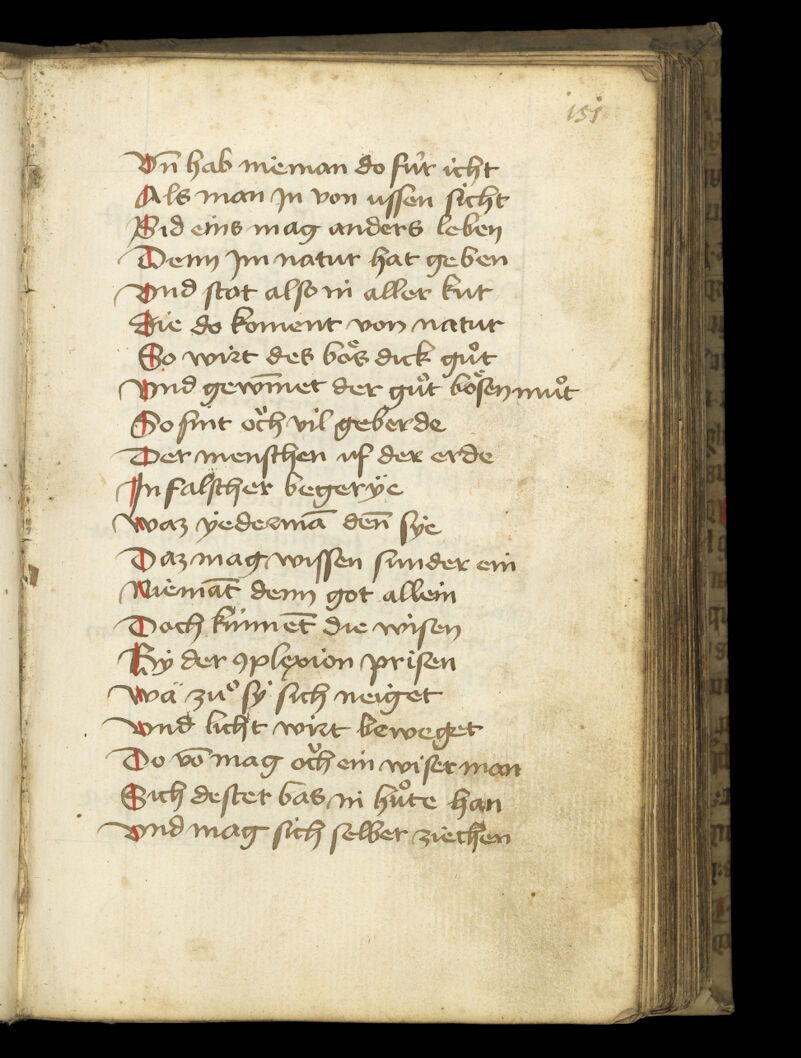 151
Vn̄ hab nieman do fúr icht
Als man jn von ussen sicht
Sid eins mag anders leben
Denn jm natur hat geben
Vnd stot also in aller kur
Die do koment von natur
So wirt des boͤs dick guͦt
Vnd gewin̄et der guͦt boͤsen muͦt
So sint oͮch vil geberde
Der menschen uf der erde
In falscher begerÿe
Waz ÿedermā den̄ sÿe
Daz mag wissen sunder ein
Niemāt denn got allein
Doch kúnnēt die wisen
Bÿ der ꝯplexion prisen
Wa zuͦ sÿ sich neiget
Vnd licht wirt beweget
Do vō mag oͮch ein wiser man
Sich dester bas in huͦte han
Vnd mag sich selber ziechen